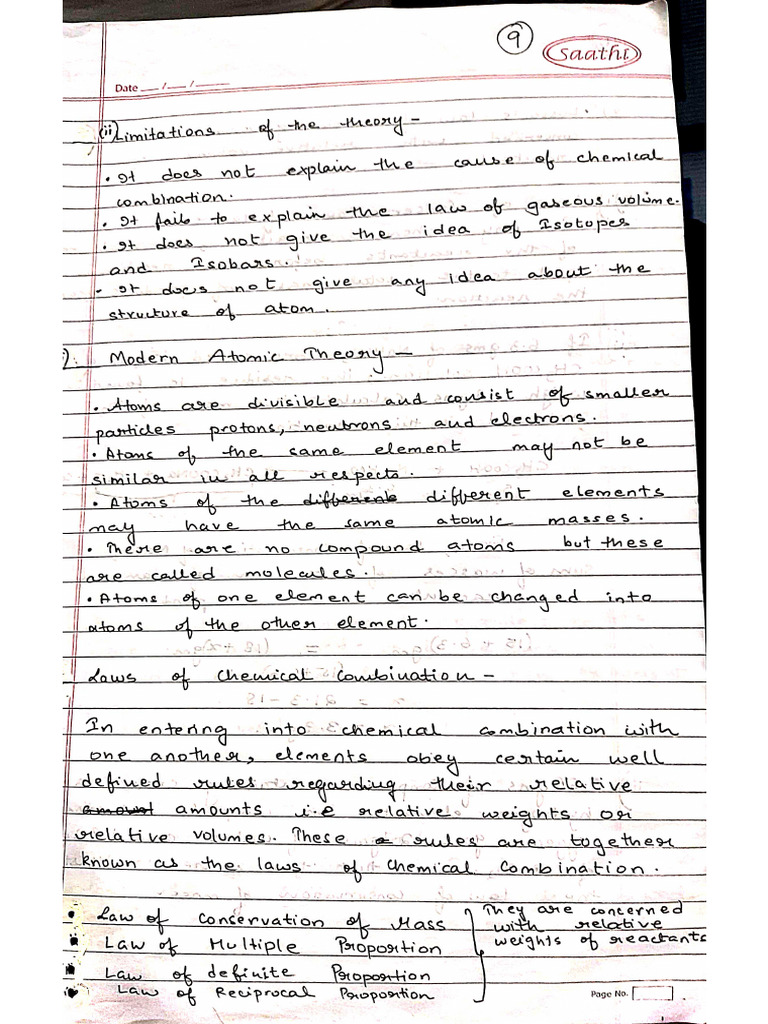 9
Saathi
Date __/__/____
(ii) Limitations of the theory –
• It does not explain the cause of chemical
combination.
• It fails to explain the law of gaseous volume.
• It does not give the idea of Isotopes
and Isobars.
- It does not give any idea about the
structure of atom.
Modern Atomic Theory –
• Atoms are divisible and consist of smaller
particles protons, neutrons and electrons.
• Atoms of the same element may not be
similar in all respects.
• Atoms of the different different elements
may have the same atomic masses.
• There are no compound atoms but these
are called molecules.
• Atoms of one element can be changed into
atoms of the other element.
Laws of Chemical Combination –
In entering into chemical combination with
one another, elements obey certain well
defined rules regarding their relative
amount amounts i.e relative weights or
relative volumes. These rules are together
known as the laws of Chemical Combination.
Law of Conservation of Mass
Law of Multiple Proportion
Law of definite Proportion
Law of Reciprocal Proportion
They are concerned
with relative
weights of reactants
Page No.